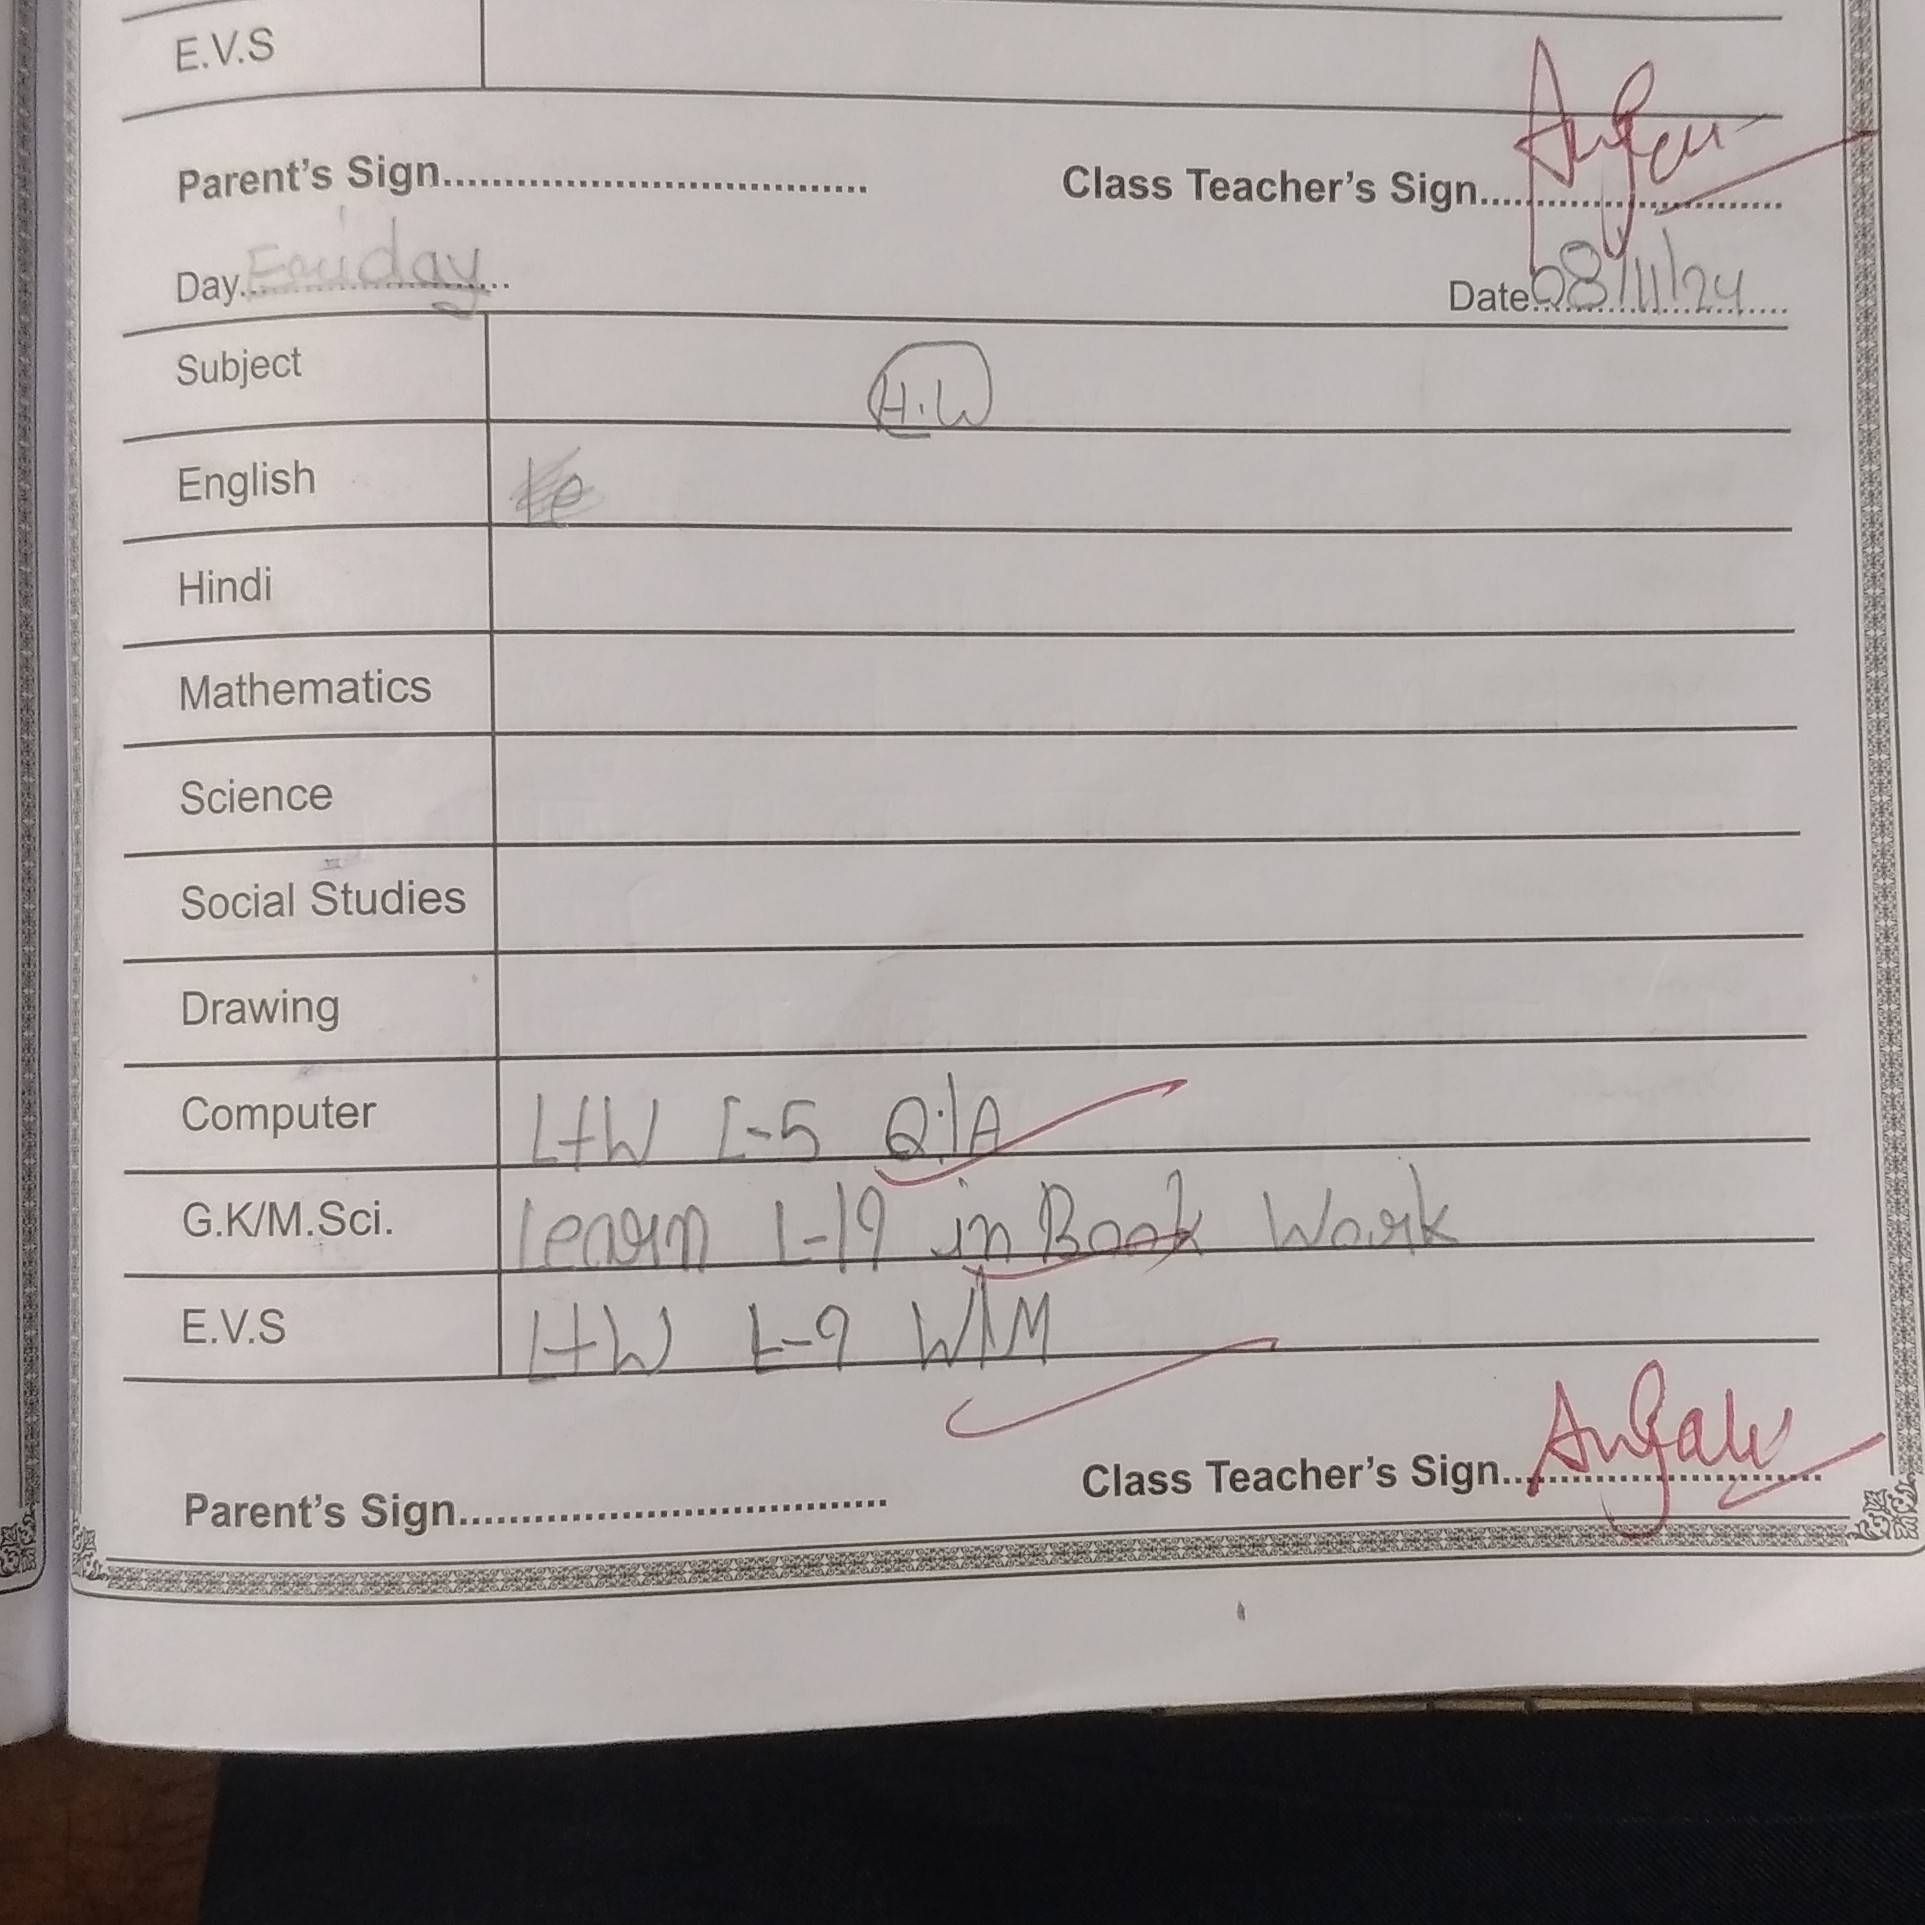 E.V.S
Parent's Sign.................................. Class Teacher's Sign........................
Day.Friday Date.08/11/24
Subject H.W
English
Hindi
Mathematics
Science
Social Studies
Drawing
Computer L+W L-5 Q:/A
G.K/M.Sci. learn L-19 in Book Work
E.V.S L+W L-9 W/M
Parent's Sign.................................. Class Teacher's Sign..Anjali